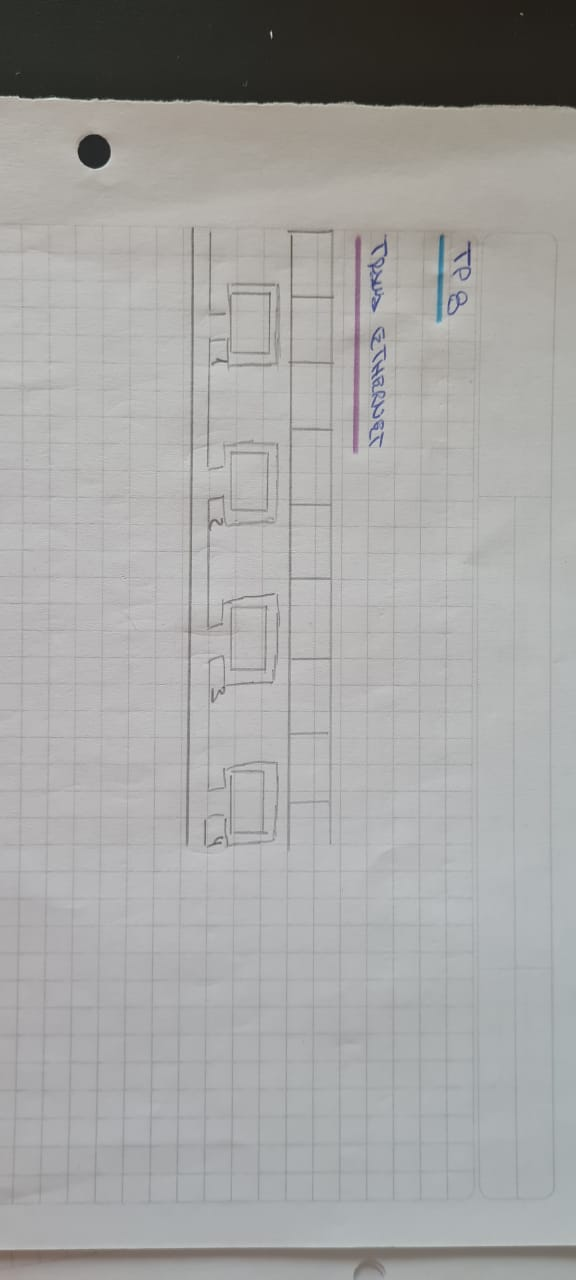 TP 8
TRAMA ETHERNET
1 2 3 4